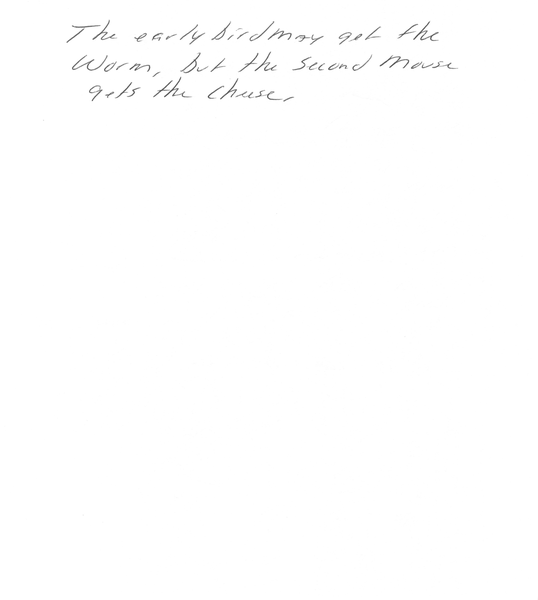 The early bird may get the
Worm, but the second mouse
gets the cheese.